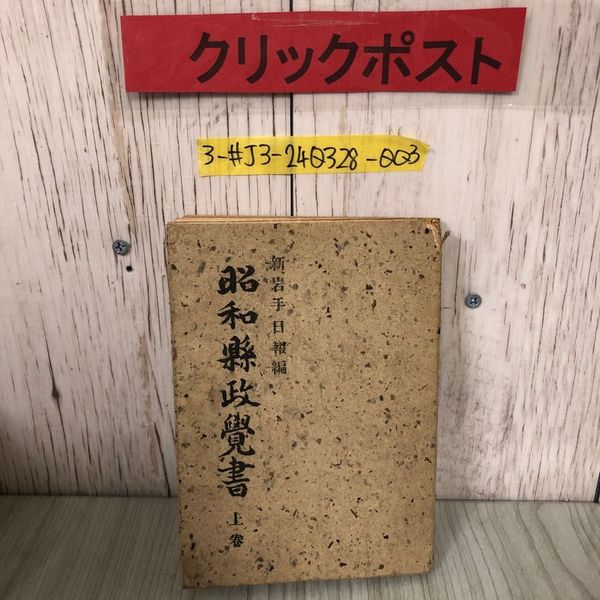 クリックポスト
3-#J3-240328-003
新岩手日報編
昭和縣政覺書
上卷